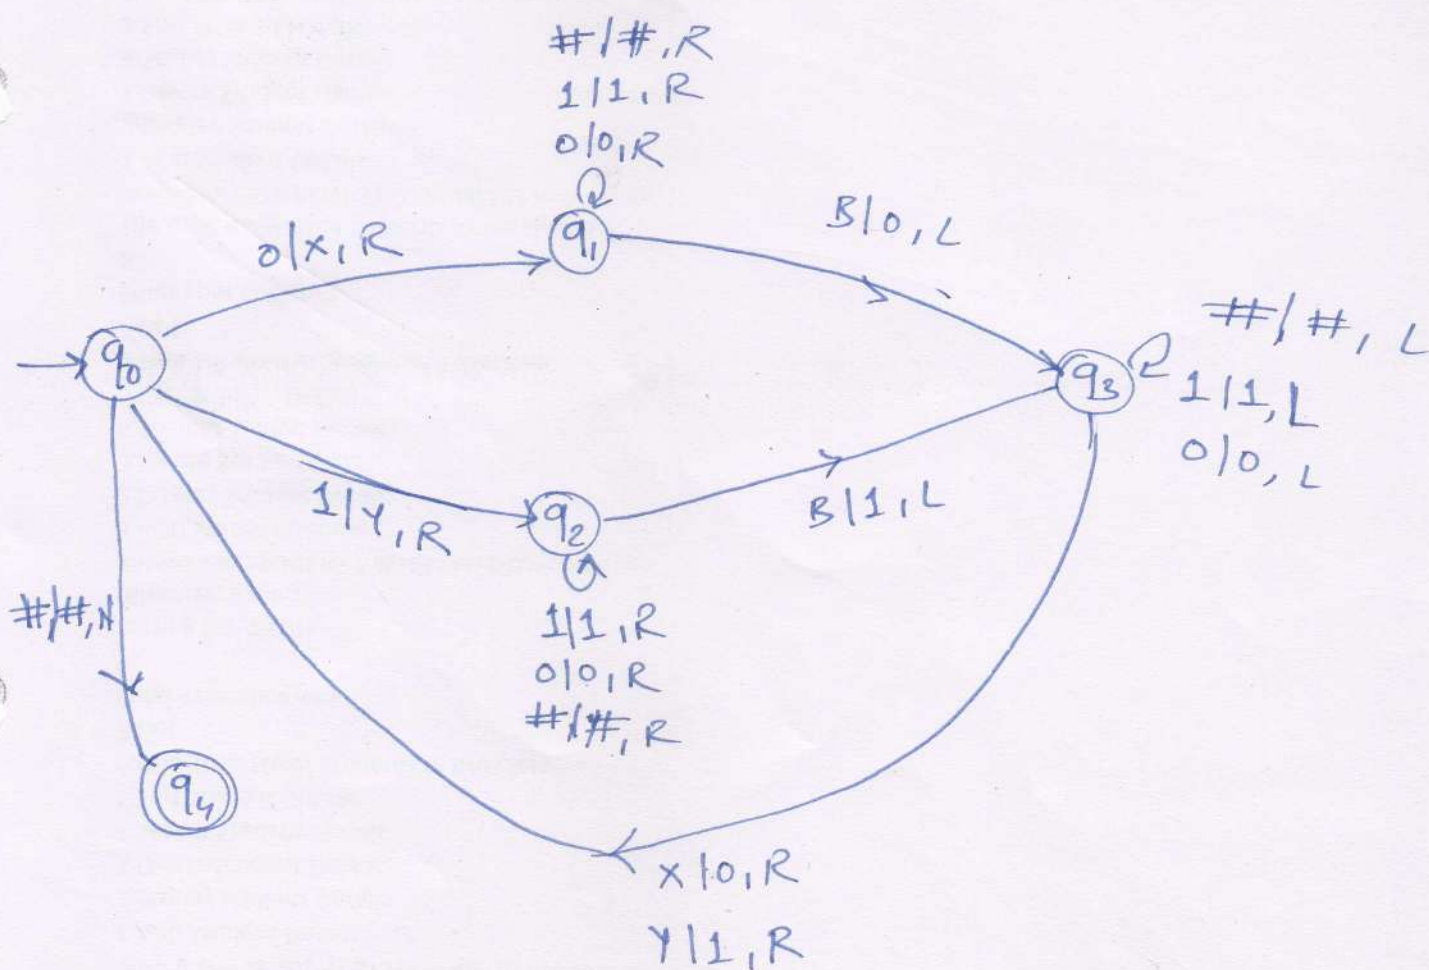 #/#, R
1/1, R
0/0, R
q1
0/X, R
B/0, L
q0
#/#, L
q3
1/1, L
0/0, L
1/Y, R
q2
B/1, L
#/#, N
1/1, R
0/0, R
#/#, R
q4
X/0, R
Y/1, R